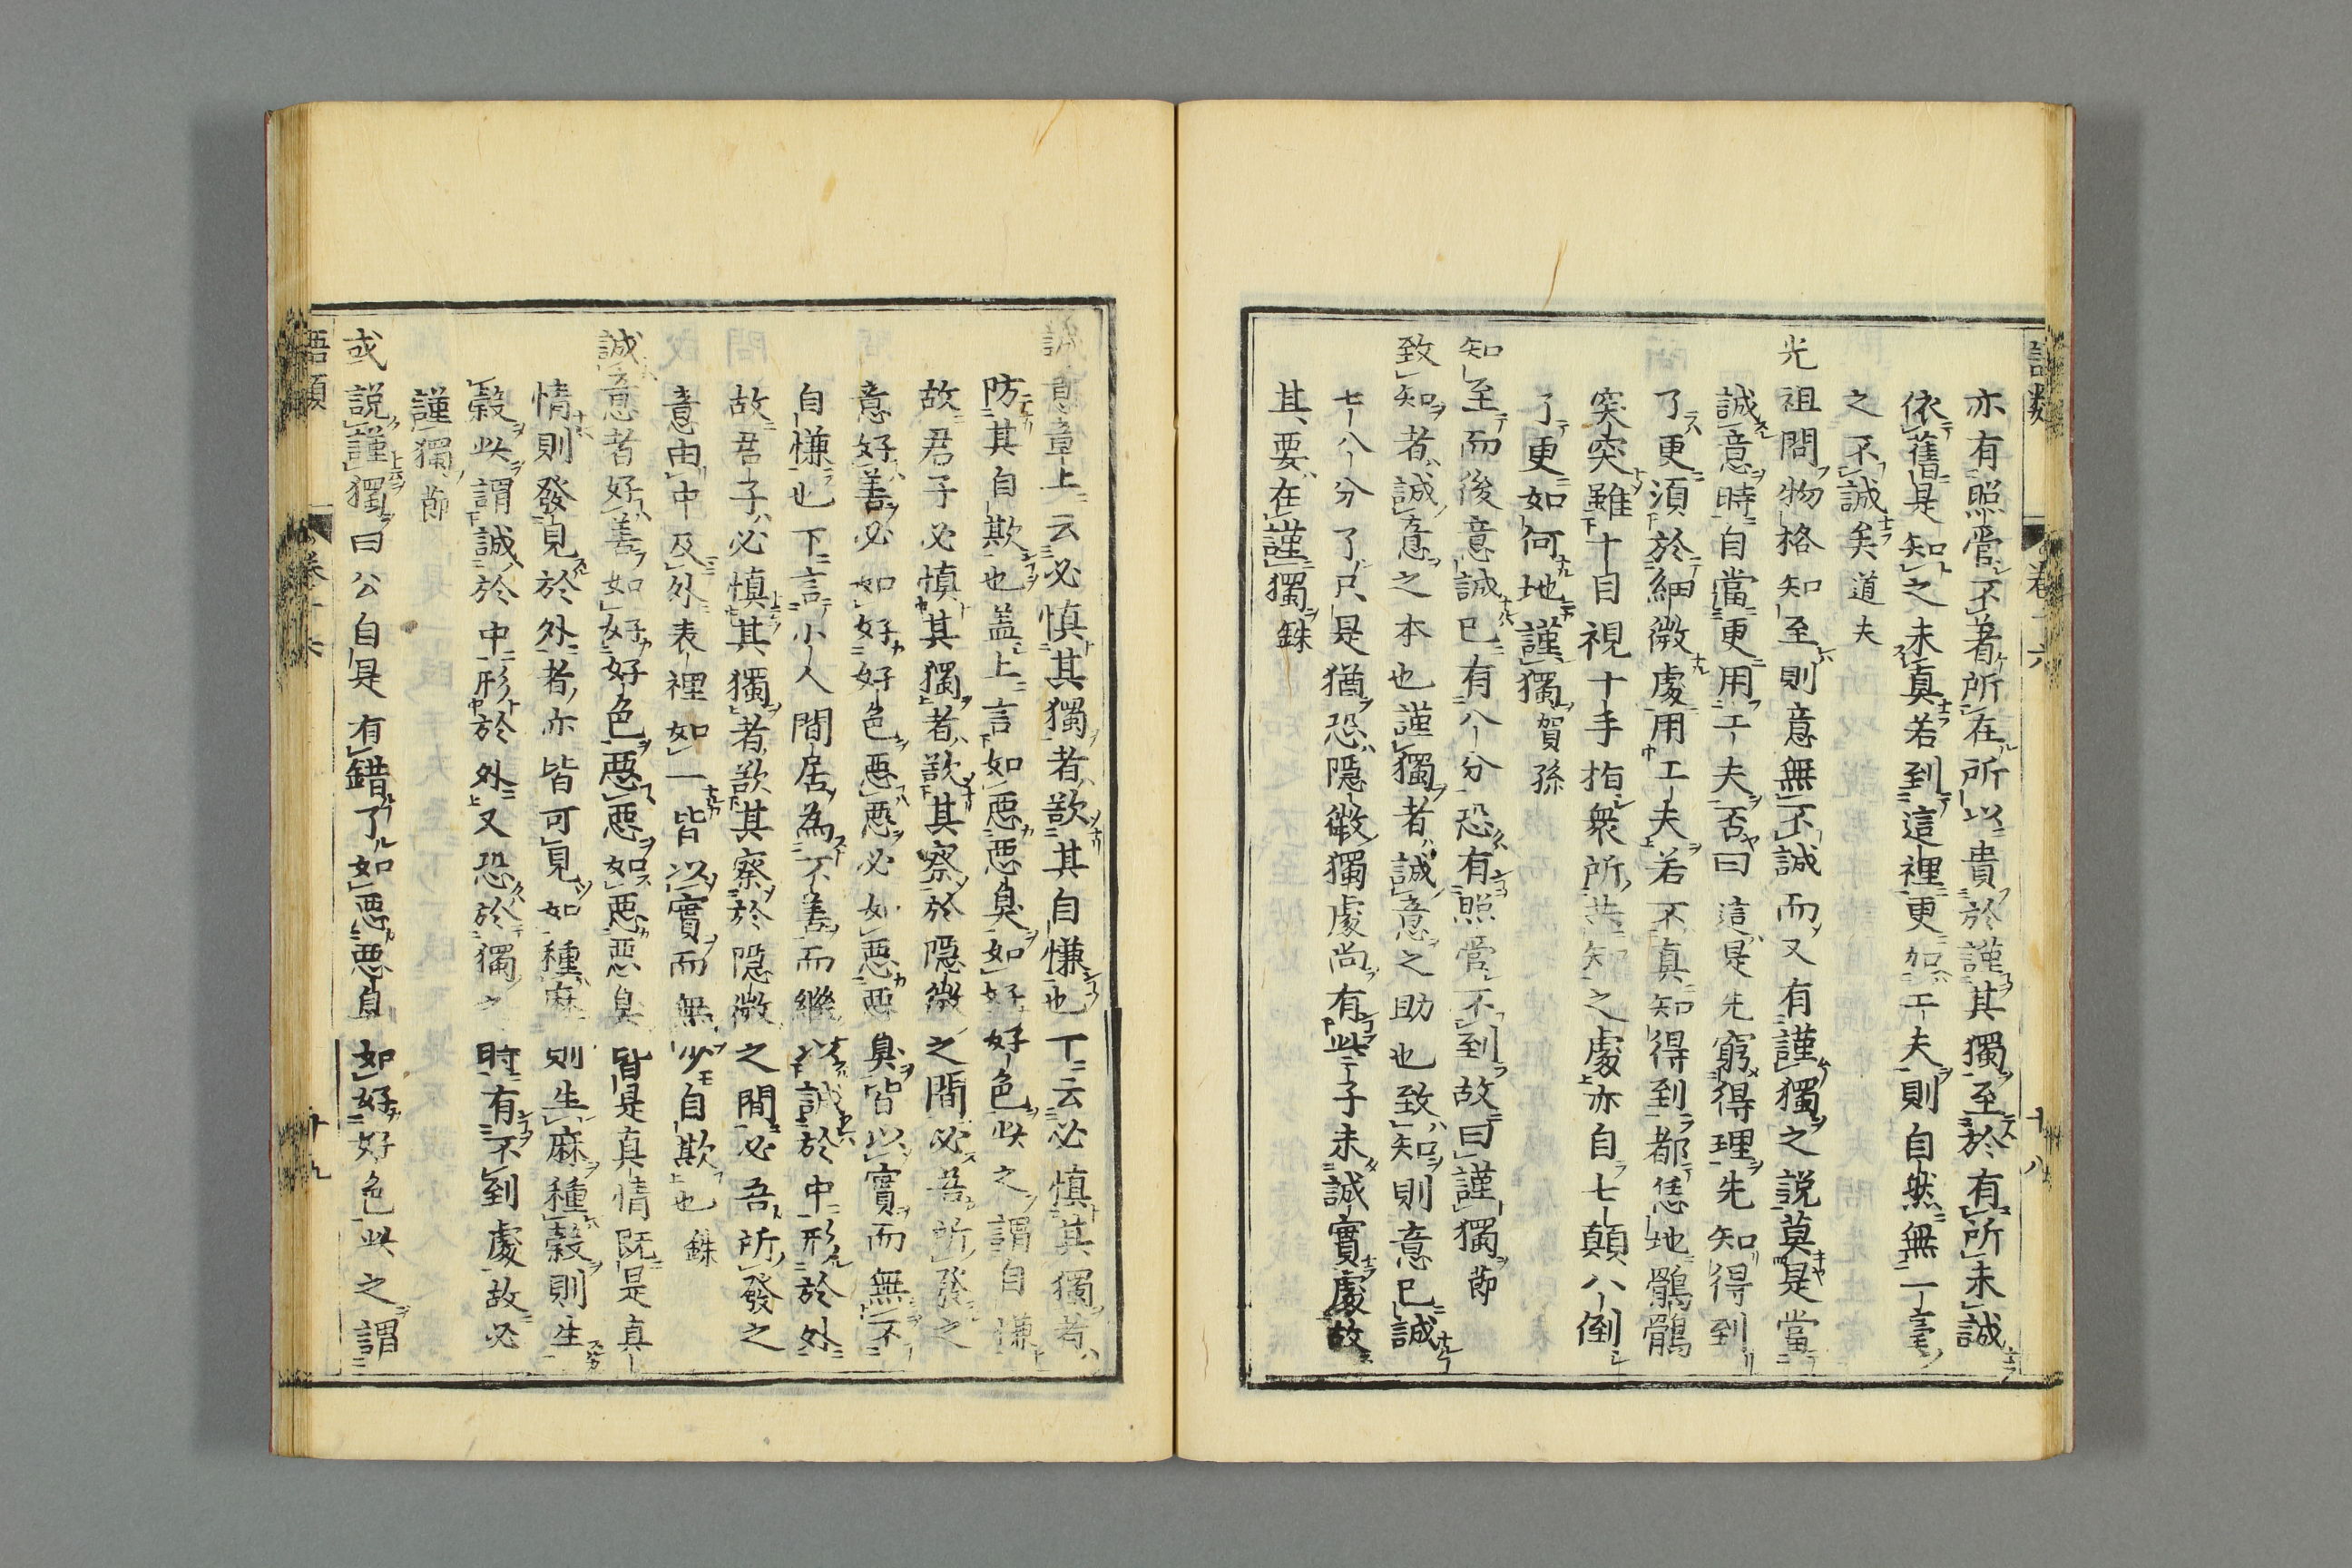 亦有照管不著所在所以貴於謹其獨至於有所未誠
依舊是知之未眞若到這裡更加工夫則自然無一毫
之不誠矣道夫
光祖問物格知至則意無不誠而又有謹獨之說莫是當
誠意時自當更用工夫否曰這是先窮得理先知得到
了更須於細微處用工夫若不真知得到都恁地鶻鶻
突突雖十目視十手指衆所共知之處亦自七顛八倒
了更如何地謹獨賀孫
知至而後意誠已有八分恐有照管不到故曰謹獨節
致知者誠意之本也謹獨者誠意之助也致知則意已誠
七八分了只是猶恐隱微獨處尚有些子未誠實處故
其要在謹獨銖
誠意章上云必慎其獨者欲其自慊也下云必慎其獨者
防其自欺也蓋上言如惡惡臭如好好色此之謂自慊
故君子必慎其獨者欲其察於隱微之間必吾所發之
意好善必如好好色惡惡必如惡惡臭皆以實而無不
自慊也下言小人間居為不善而繼以誠於中形於外
故君子必慎其獨者欲其察於隱微之間必吾所發之
意由中及外表裡如一皆以實而無少自欺也銖
誠意者好善如好好色惡惡如惡惡臭皆是真情既是真
情則發見於外者亦皆可見如種麻則生麻種穀則生
穀此謂誠於中形於外又恐於獨之時有不到處故必
謹獨節
或說謹獨曰公自是有錯了如惡惡臭如好好色此之謂